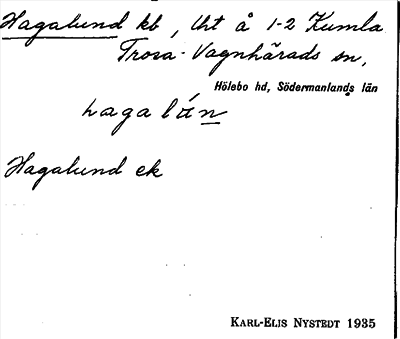 Hagalund kb, lht å 1-2 Kumla
Trosa-Vagnhärads sn,
Hölebo hd, Södermanlands län
hagalún
Hagalund ek
KARL-ELIS NYSTEDT 1935